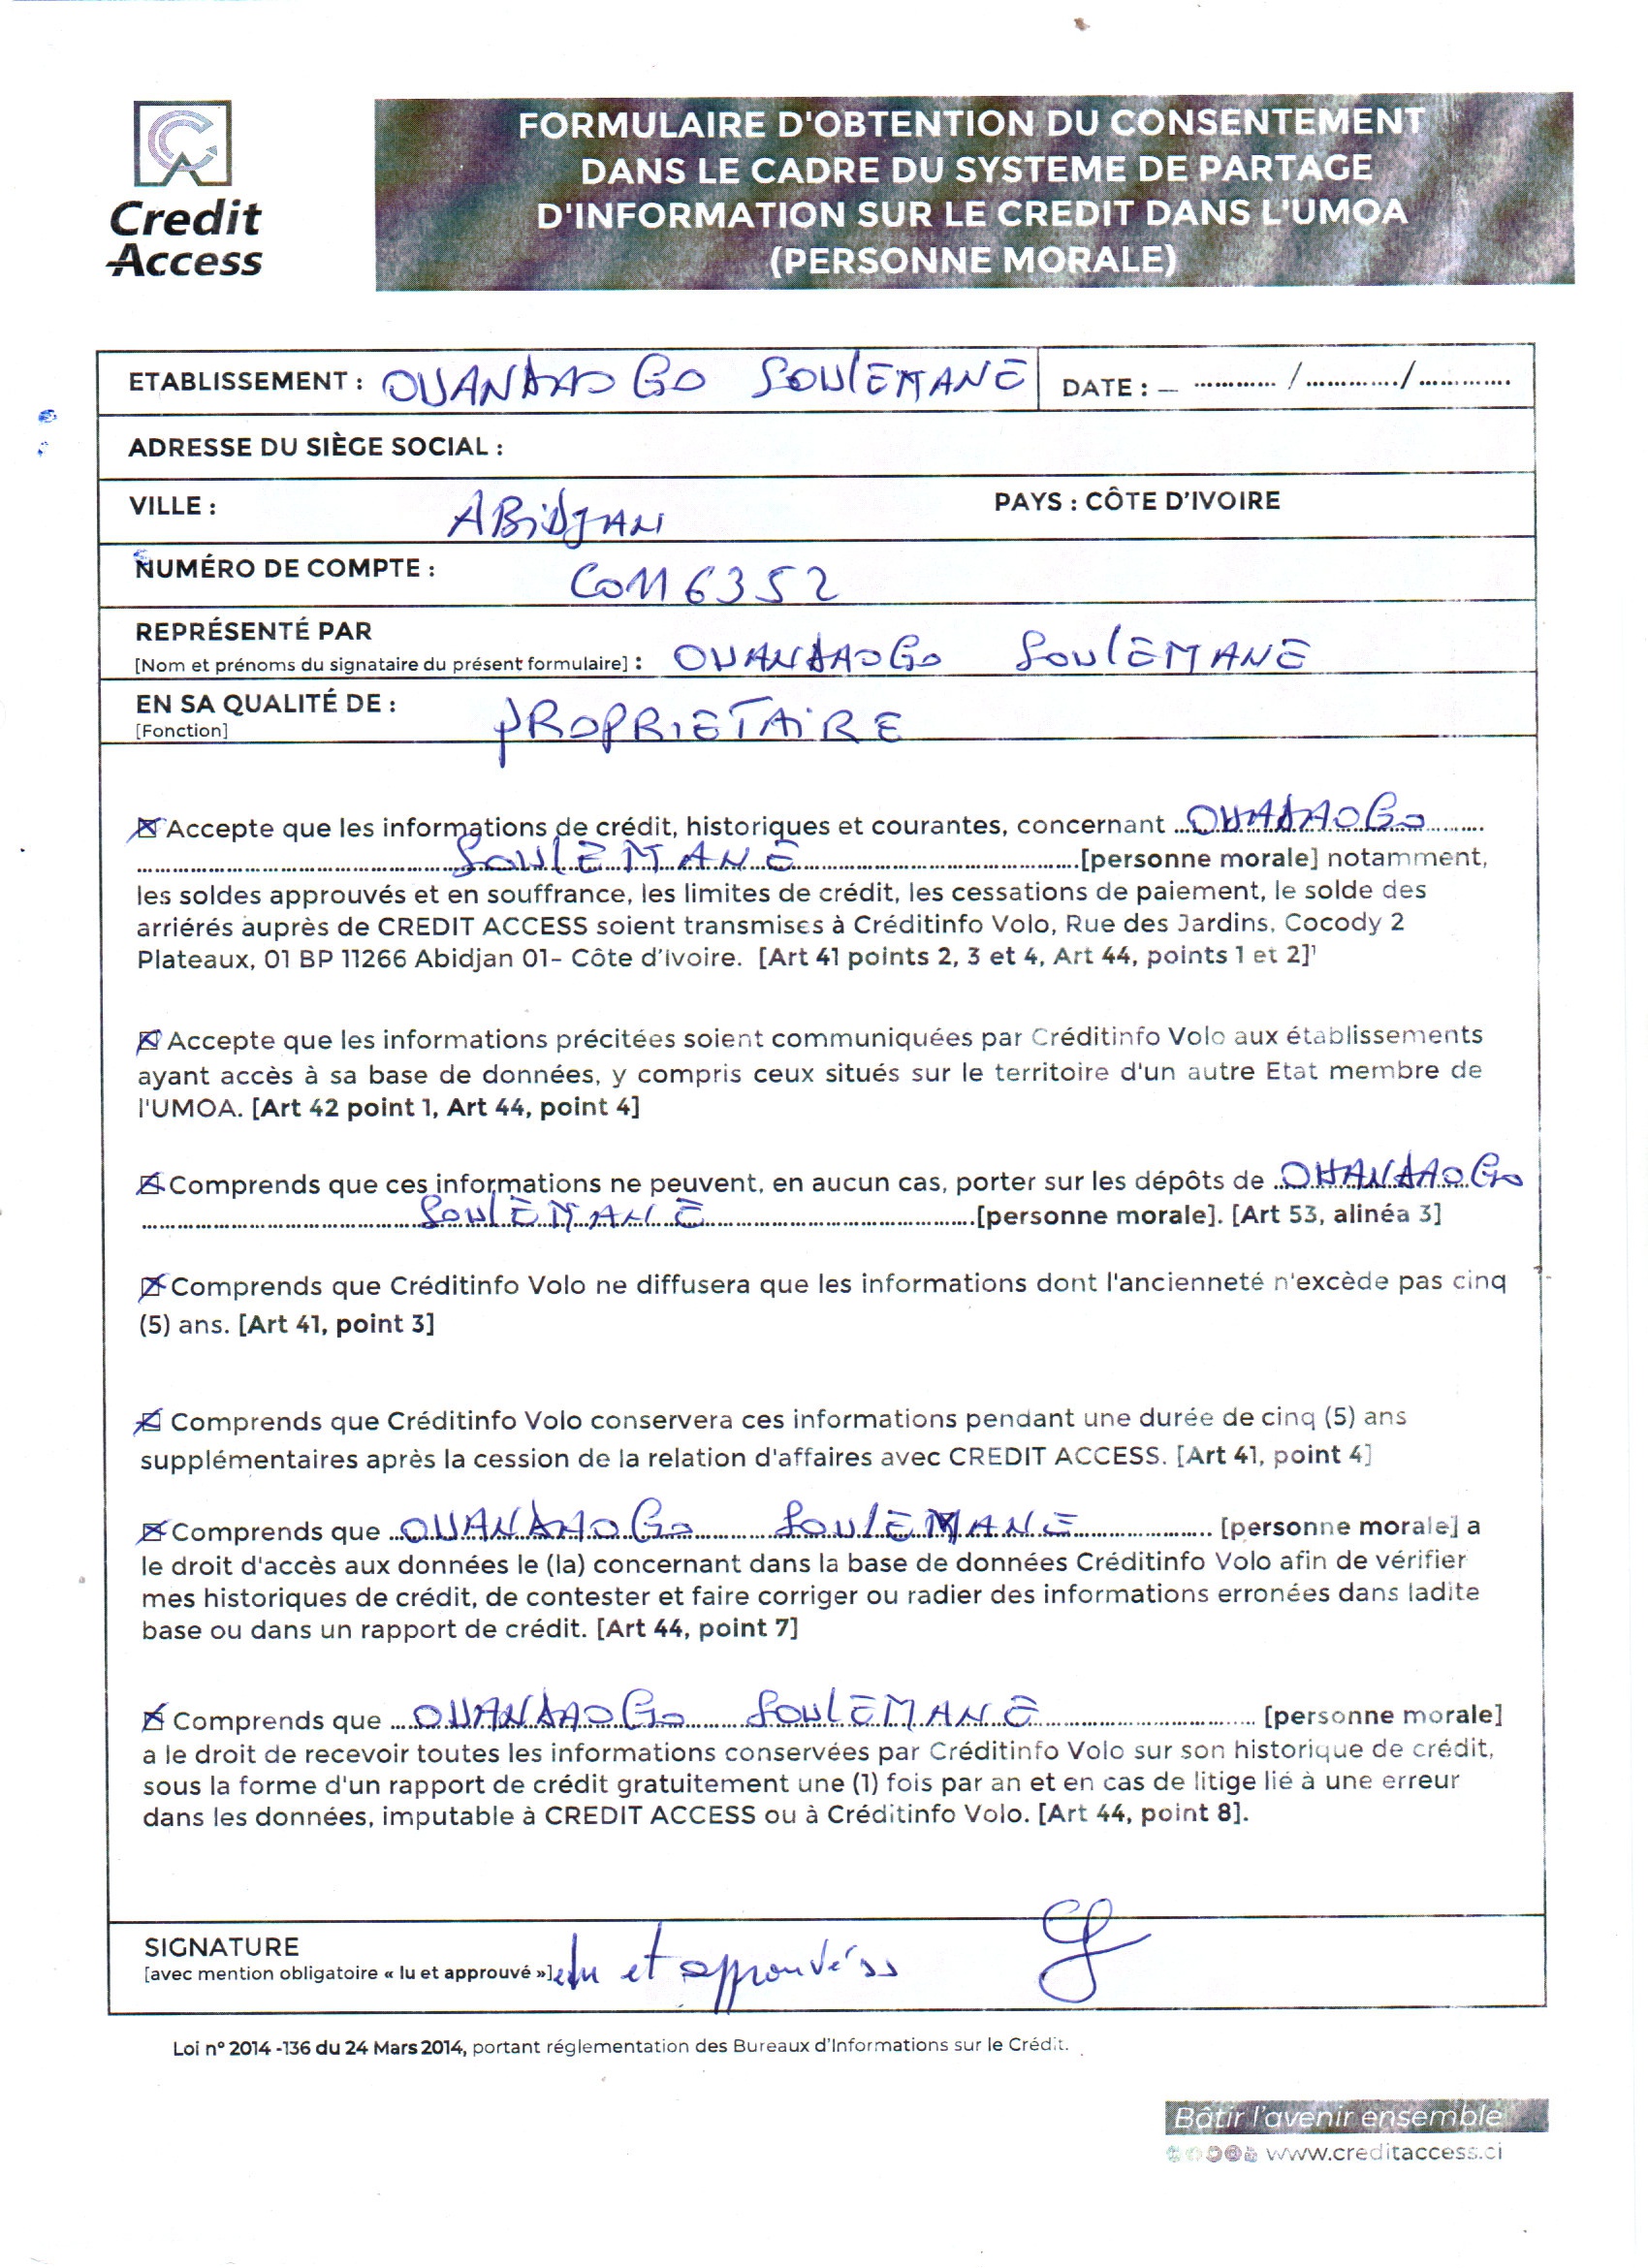 Credit
Access
FORMULAIRE D'OBTENTION DU CONSENTEMENT
DANS LE CADRE DU SYSTEME DE PARTAGE
D'INFORMATION SUR LE CREDIT DANS L'UMOA
(PERSONNE MORALE)
ETABLISSEMENT : OUANDAOGO SOULEMANE DATE : – ............ /............./.............
ADRESSE DU SIÈGE SOCIAL :
VILLE : ABIDJAN PAYS : CÔTE D'IVOIRE
NUMÉRO DE COMPTE : C0116352
REPRÉSENTÉ PAR
[Nom et prénoms du signataire du présent formulaire] : OUANDAOGO SOULEMANE
EN SA QUALITÉ DE : PROPRIETAIRE
[Fonction]
☒ Accepte que les informations de crédit, historiques et courantes, concernant OUADAOGO
SOULEMANE [personne morale] notamment,
les soldes approuvés et en souffrance, les limites de crédit, les cessations de paiement, le solde des
arriérés auprès de CREDIT ACCESS soient transmises à Créditinfo Volo, Rue des Jardins, Cocody 2
Plateaux, 01 BP 11266 Abidjan 01- Côte d'Ivoire. [Art 41 points 2, 3 et 4, Art 44, points 1 et 2]¹
☒ Accepte que les informations précitées soient communiquées par Créditinfo Volo aux établissements
ayant accès à sa base de données, y compris ceux situés sur le territoire d'un autre Etat membre de
l'UMOA. [Art 42 point 1, Art 44, point 4]
☒ Comprends que ces informations ne peuvent, en aucun cas, porter sur les dépôts de OUANDAOGO
SOULEMANE [personne morale]. [Art 53, alinéa 3]
☒ Comprends que Créditinfo Volo ne diffusera que les informations dont l'ancienneté n'excède pas cinq
(5) ans. [Art 41, point 3]
☒ Comprends que Créditinfo Volo conservera ces informations pendant une durée de cinq (5) ans
supplémentaires après la cession de la relation d'affaires avec CREDIT ACCESS. [Art 41, point 4]
☒ Comprends que OUANDAOGO SOULEMANE [personne morale] a
le droit d'accès aux données le (la) concernant dans la base de données Créditinfo Volo afin de vérifier
mes historiques de crédit, de contester et faire corriger ou radier des informations erronées dans ladite
base ou dans un rapport de crédit. [Art 44, point 7]
☒ Comprends que OUANDAOGO SOULEMANE [personne morale]
a le droit de recevoir toutes les informations conservées par Créditinfo Volo sur son historique de crédit,
sous la forme d'un rapport de crédit gratuitement une (1) fois par an et en cas de litige lié à une erreur
dans les données, imputable à CREDIT ACCESS ou à Créditinfo Volo. [Art 44, point 8].
SIGNATURE
[avec mention obligatoire « lu et approuvé »] lu et approuvé
Loi n° 2014 -136 du 24 Mars 2014, portant réglementation des Bureaux d'Informations sur le Crédit.
Bâtir l'avenir ensemble
www.creditaccess.ci